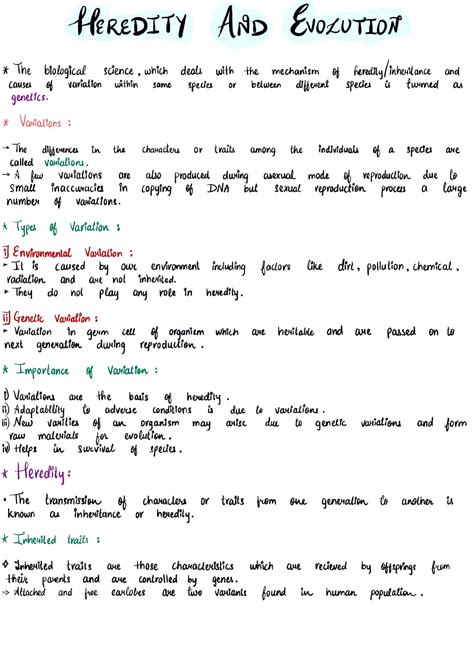 HEREDITY AND EVOLUTION
* The biological science, which deals with the mechanism of heredity/inheritance and
causes of variation within same species or between different species is turmed as
genetics.
* Variations :
→ The differences in the characters or traits among the individuals of a species are
called variations.
→ A few variations are also produced during asexual mode of reproduction due to
small inaccuracies in copying of DNA but sexual reproduction process a large
number of variations.
* Types of Variation :
i] Environmental Variation :
- It is caused by our environment including factors like dirt, pollution, chemical,
radiation and are not inherited.
- They do not play any role in heredity.
ii] Genetic Variation :
- Variation in germ cell of organism which are heritable and are passed on to
next generation during reproduction.
* Importance of Variation :
i) Variations are the basis of heredity.
ii) Adaptability to adverse conditions is due to variations.
iii) New varities of an organism may arise due to genetic variations and form
raw materials for evolution.
iv) Helps in survival of species.
* Heredity:
• The transmission of characters or traits from one generation to another is
known as inheritance or heredity.
* Inherited traits :
❖ Inherited traits are those characteristics which are recieved by offsprings from
their parents and are controlled by genes.
⇒ Attached and free earlobes are two variants found in human population.